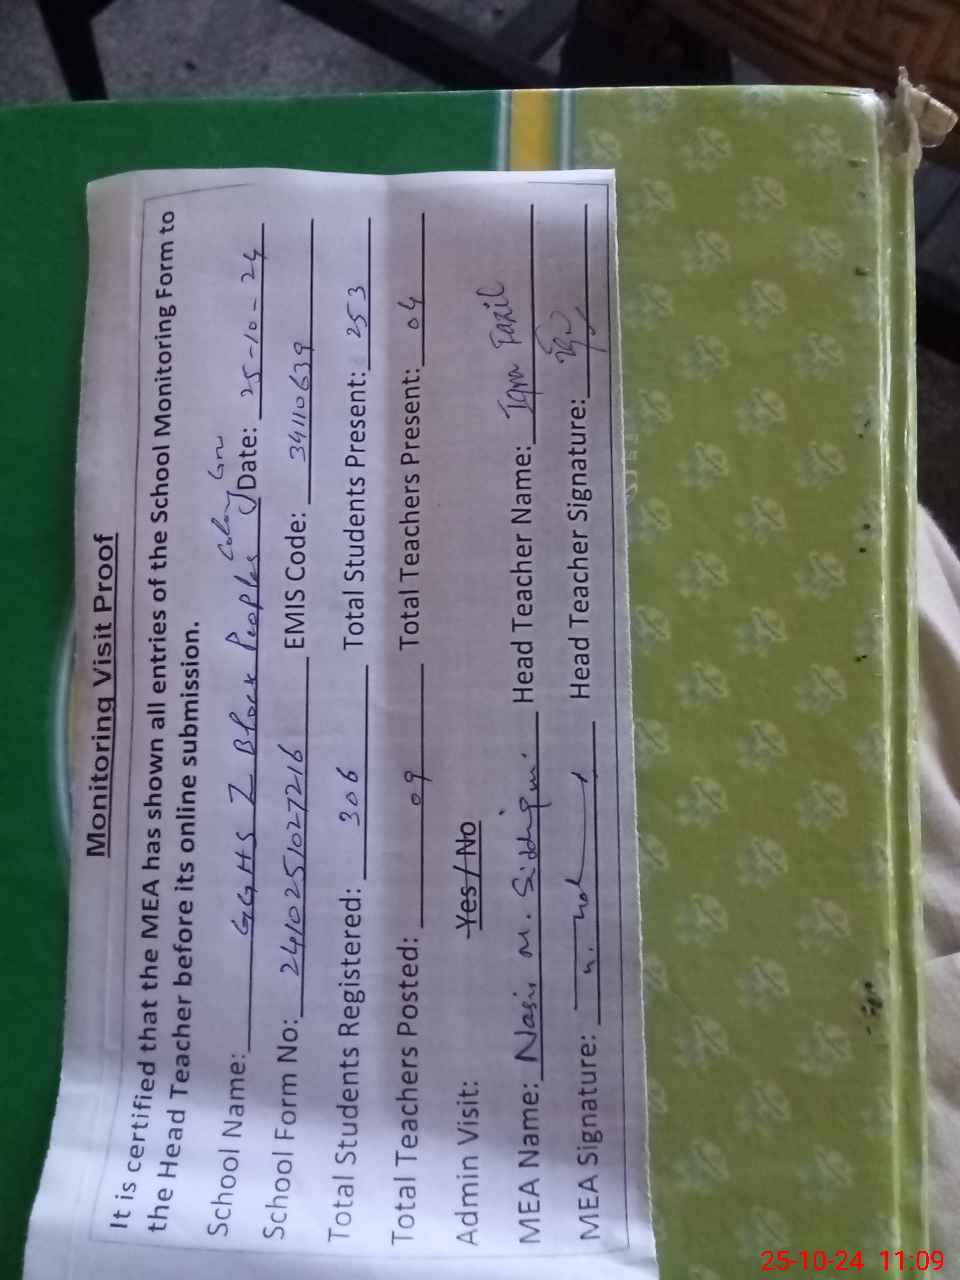 Monitoring Visit Proof
It is certified that the MEA has shown all entries of the School Monitoring Form to
the Head Teacher before its online submission.
School Name: GGHS Z Block Peoples Colony Grw Date: 25-10-24
School Form No: 241025102 7216 EMIS Code: 34110639
Total Students Registered: 306 Total Students Present: 253
Total Teachers Posted: 09 Total Teachers Present: 04
Admin Visit: Yes / No
MEA Name: Nasir M. Siddiqui. Head Teacher Name: Iqra Fazil
MEA Signature: Head Teacher Signature:
25-10-24 11:09